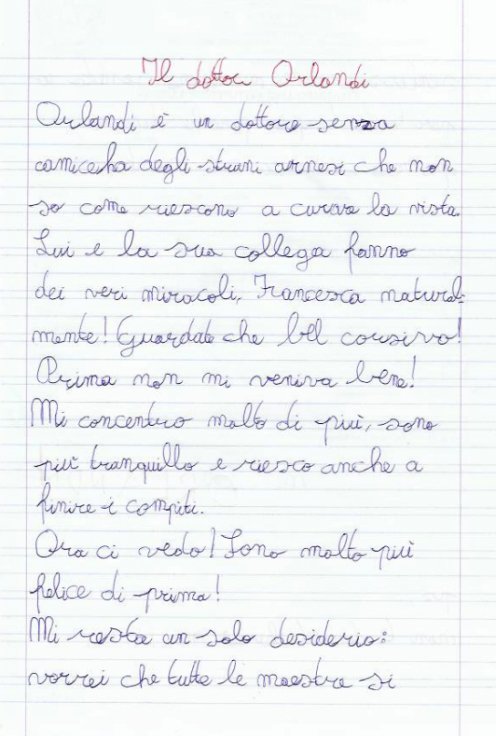 Il dottor Orlandi
Orlandi è un dottore senza
camice, ha degli strani arnesi che non
so come riescono a curare la vista.
Lui e la sua collega fanno
dei veri miracoli, Francesca natural=
mente! Guardate che bel corsivo!
Prima non mi veniva bene!
Mi concentro molto di più, sono
più tranquillo e riesco anche a
finire i compiti.
Ora ci vedo! Sono molto più
felice di prima!
Mi resta un solo desiderio:
vorrei che tutte le maestre si